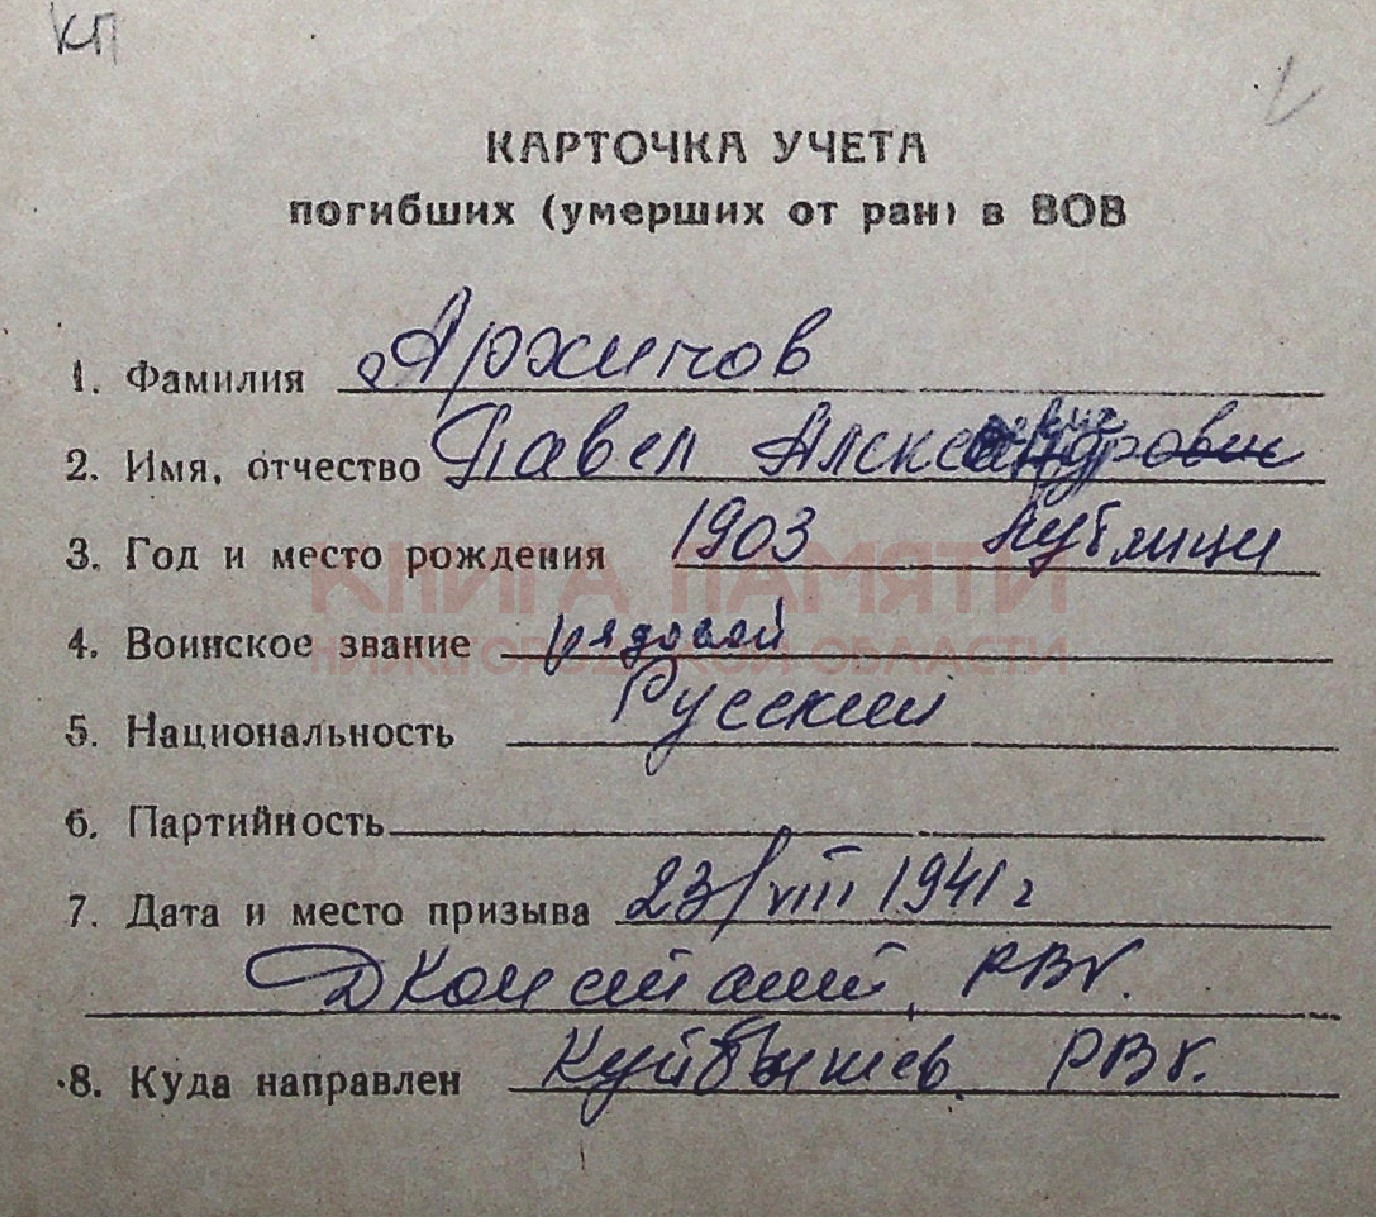 КП
КАРТОЧКА УЧЕТА
погибших (умерших от ран) в ВОВ
1. Фамилия Архипов
2. Имя, отчество Павел Алексеевич
3. Год и место рождения 1903 Кубмици
КНИГА ПАМЯТИ
4. Воинское звание рядовой
НИЖЕГОРОДСКОЙ ОБЛАСТИ
5. Национальность Русский
6. Партийность
7. Дата и место призыва 23/VIII 1941 г
РВК.
8. Куда направлен Куйбышев. РВК.